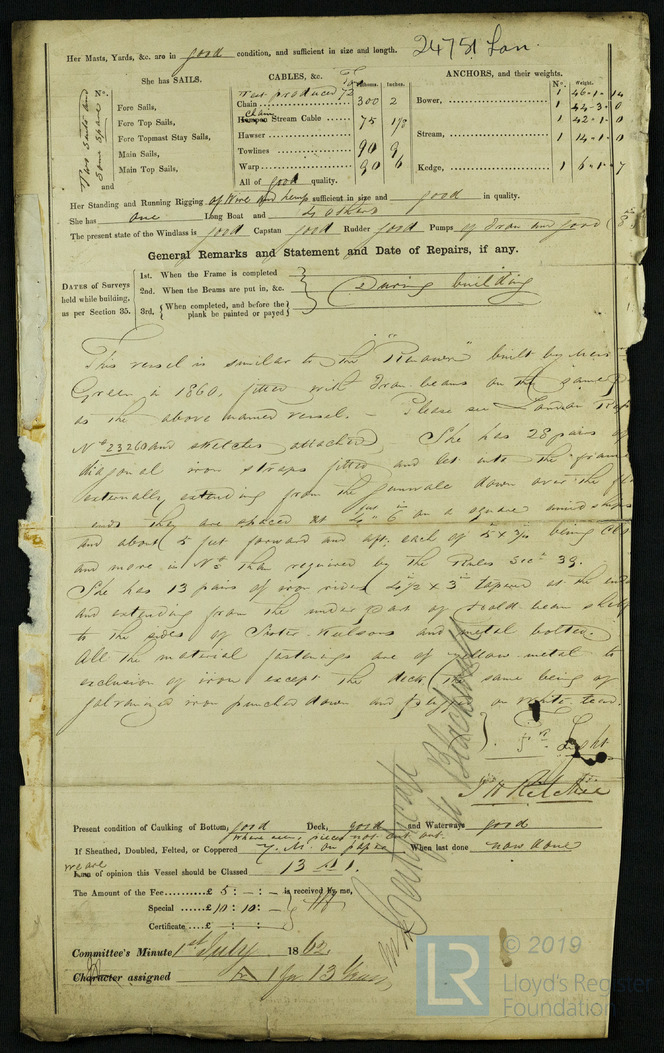 Her Masts, Yards, &c. are in good condition, and sufficient in size and length. 24751 Lon.
She has SAILS. CABLES, &c. Fathoms. Inches. ANCHORS, and their weights. No. Weight.
N°.
Two Suits and Some Spare
Fore Sails,
Fore Top Sails,
Fore Topmast Stay Sails,
Main Sails,
Main Top Sails,
and
Test produced 72
Chain 300 2
Chain Stream Cable 75
Hawser
Towlines 90 9
Warp 90 6
All of good quality.
Bower, 1 46-1-14
1 44-3-0
1 42-1-0
Stream, 1 14-1-0
Kedge, 1 6-1-7
Her Standing and Running Rigging of Wire and hemp sufficient in size and good in quality.
She has one Long Boat and 4 others
The present state of the Windlass is good Capstan good Rudder good Pumps of Iron and good
General Remarks and Statement and Date of Repairs, if any.
DATES of Surveys held while building, as per Section 35.
1st. When the Frame is completed
2nd. When the Beams are put in, &c.
3rd. When completed, and before the plank be painted or payed
During building
This vessel is similar to the "Renown" built by Mess
Green in 1860, fitted with Iron beams on the same
as the above named vessel. - Please see London Rep
N° 23260 and sketches attached She has 28 pairs of
diagonal iron straps fitted and let into the frame
externally extending from the gunwale down over the
ends they are spaced at 4 feet 6 in on a square midships
and about 5 feet forward and aft, each of 5 x being
and more in N° than required by the Rules Sect 39.
She has 13 pairs of iron riders 4 1/2 x 3 in tapered at the ends
and extending from the under part of hold beam shelf
to the sides of Sister Keelsons and metal bolted.
All the material fastenings are of yellow metal to
exclusion of iron except the deck, the same being of
galvanized iron punched down and on white lead.
Light
J H Ritchie
Present condition of Caulking of Bottom, good Deck, good and Waterways good
where pieces not cut out
If Sheathed, Doubled, Felted, or Coppered Y. M. on paper When last done now done
we are of opinion this Vessel should be Classed 13 A 1.
The Amount of the Fee £ 5 : - : - is received by me,
Special £ 10 : 10 : -
Certificate £ : :
Certificate Blackwall
Committee's Minute 1st July 1862.
Character assigned A 1 for 13 Years
LR
© 2019
Lloyd's Register
Foundation